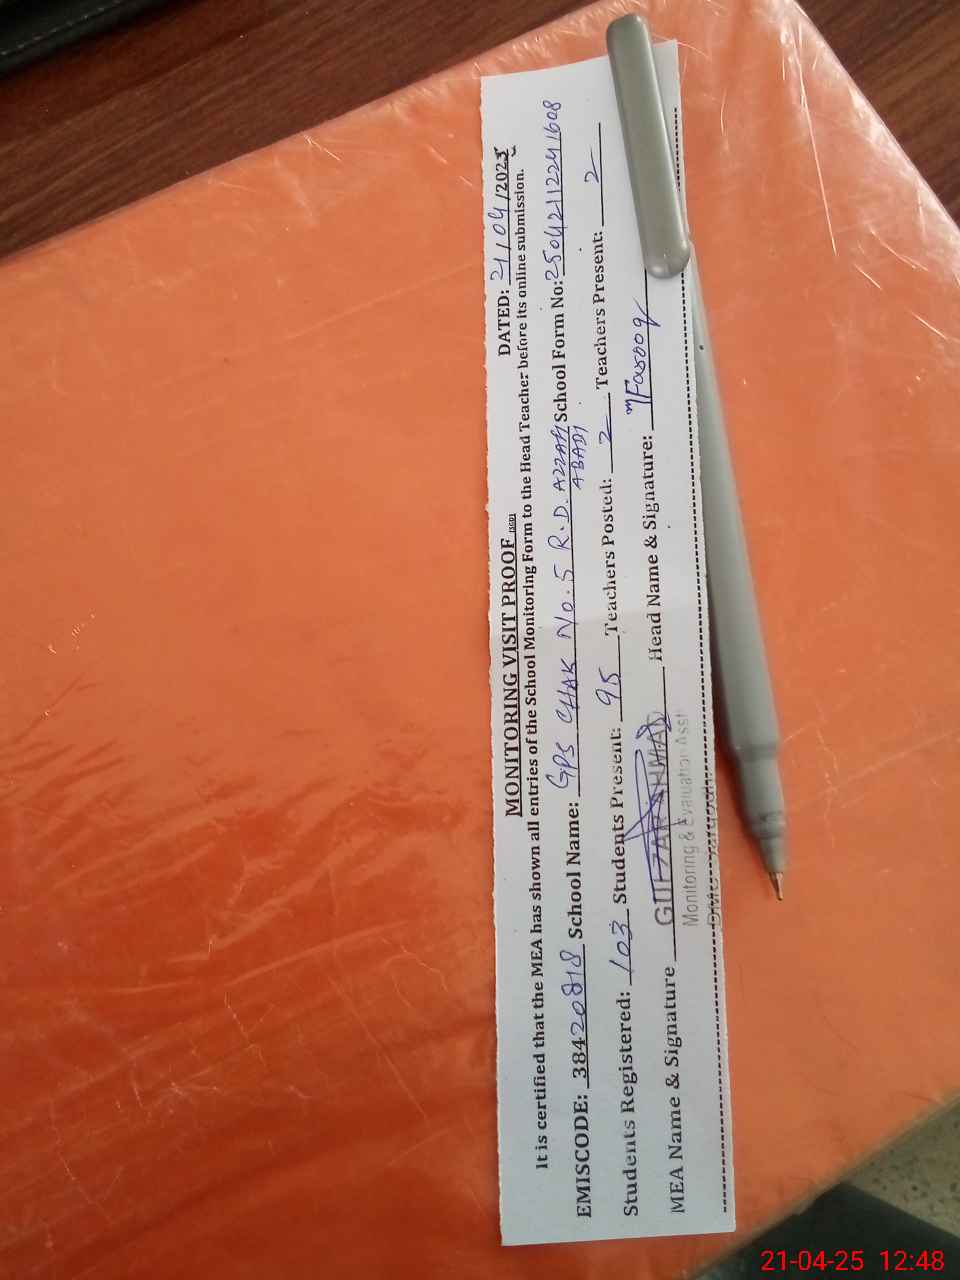 MONITORING VISIT PROOF (SCD)
DATED: 21/04/2025
It is certified that the MEA has shown all entries of the School Monitoring Form to the Head Teacher before its online submission.
EMISCODE: 38420818 School Name: GPS CHAK No. 5 R.D. AZZAM ABADI School Form No: 250421122411608
Students Registered: 103 Students Present: 95 Teachers Posted: 2 Teachers Present: 2
MEA Name & Signature GULZAR AHMAD Head Name & Signature: mFarooq
Monitoring & Evaluation Asst
21-04-25 12:48